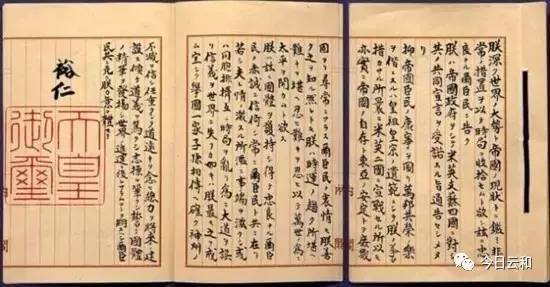 朕深ク世界ノ大勢ト帝國ノ現狀トニ鑑ミ非
常ノ措置ヲ以テ時局ヲ收拾セムト欲シ茲ニ忠
良ナル爾臣民ニ告ク
朕ハ帝國政府ヲシテ米英支蘇四國ニ對シ
其ノ共同宣言ヲ受諾スル旨通告セシメタリ
抑々帝國臣民ノ康寧ヲ圖リ萬邦共榮ノ樂
ヲ偕ニスルハ皇祖皇宗ノ遺範ニシテ朕ノ拳々
措カサル所曩ニ米英二國ニ宣戰セル所以モ
亦實ニ帝國ノ自存ト東亞ノ安定トヲ庶幾
固ヨリ尋常ニアラス爾臣民ノ衷情モ朕善
ク之ヲ知ル然レトモ朕ハ時運ノ趨ク所堪ヘ
難キヲ堪ヘ忍ヒ難キヲ忍ヒ以テ萬世ノ爲ニ
太平ヲ開カムト欲ス
朕ハ茲ニ國體ヲ護持シ得テ忠良ナル爾臣
民ノ赤誠ニ信倚シ常ニ爾臣民ト共ニ在リ
若シ夫レ情ノ激スル所濫ニ事端ヲ滋クシ或
ハ同胞排擠互ニ時局ヲ亂リ爲ニ大道ヲ誤
リ信義ヲ世界ニ失フカ如キハ朕最モ之ヲ戒
ム宜シク擧國一家子孫相傳ヘ確ク神州ノ
不滅ヲ信シ任重クシテ道遠キヲ念ヒ總力ヲ將來ノ建
設ニ傾ケ道義ヲ篤クシ志操ヲ鞏クシ誓テ國體
ノ精華ヲ發揚シ世界ノ進運ニ後レサラムコトヲ期スヘシ爾臣
民其レ克ク朕カ意ヲ體セヨ
裕仁
天皇
御璽
今日云和